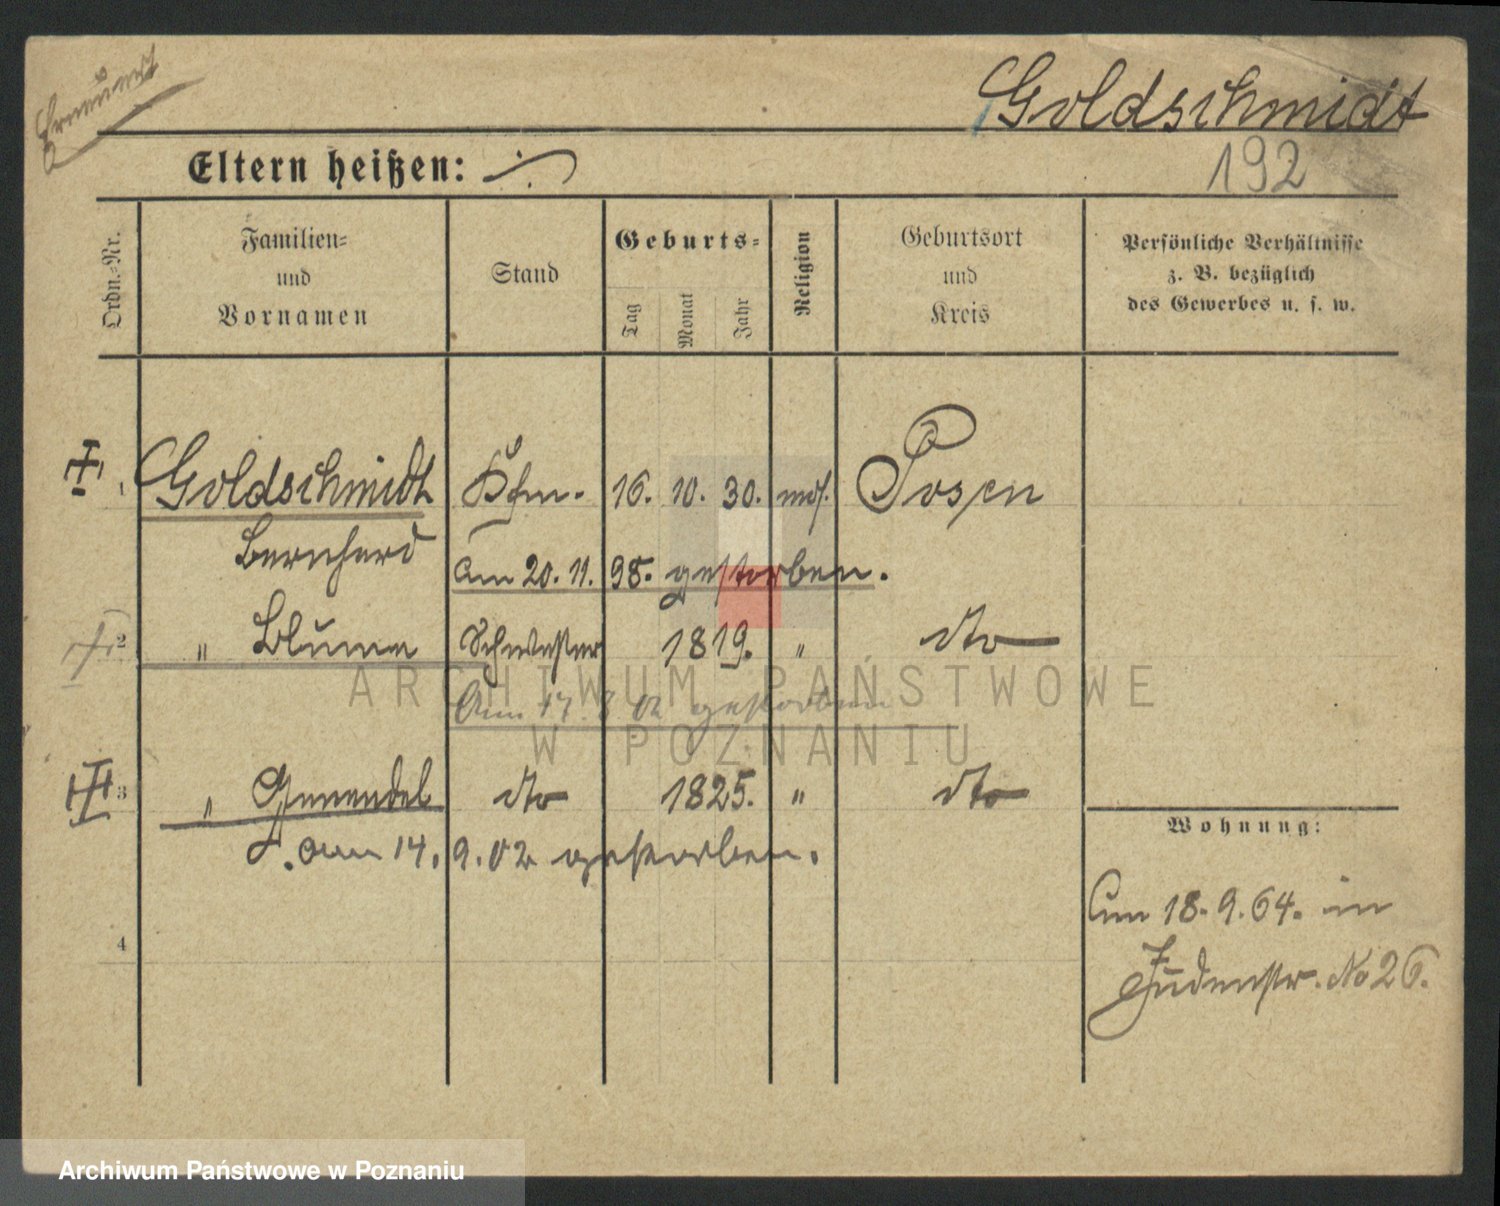 Erneuert
Goldschmidt
192
Eltern heißen: ./.
Ordn.-Nr.
Familien-
und
Vornamen
Stand
Geburts-
Tag
Monat
Jahr
Religion
Geburtsort
und
Kreis
Persönliche Verhältnisse
z. B. bezüglich
des Gewerbes u. s. w.
1 Goldschmidt Kfm. 16. 10. 30. mos. Posen
Bernhard
am 20. 11. 98. gestorben.
2 " Blume Schwester 1819. " dto
Am 17. 8 02 gestorben
3 " Genendel dto 1825. " dto
am 14. 9. 02 gestorben.
4
Wohnung:
Am 18. 9. 64. in
Judenstr. No 26.
ARCHIWUM PAŃSTWOWE
W POZNANIU
Archiwum Państwowe w Poznaniu